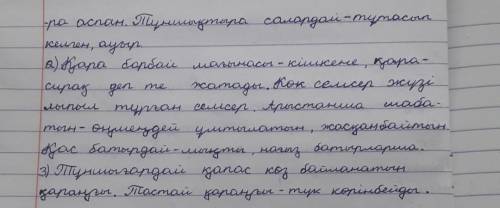 -ра аспан. Тұншықтыра салардай-тұтасып
келген, ауыр.
2) Қара барбай мағынасы-кішкене, қара-
сирақ деп те жатады. Көк семсер жүзі
лыпып тұрған семсер. Арыстанша шаба-
тын-өңмеңдей ұмтылатын, жасқанбайтын
Қас батырдай-мықты, нағыз батырларша.
3) Тұншығардай қапас көз байланатын
қараңғы. Тастай қараңғы-түк көрінбейді.